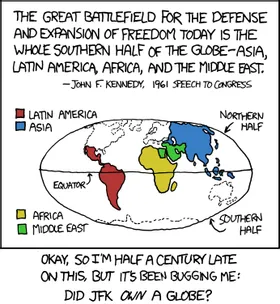 THE GREAT BATTLEFIELD FOR THE DEFENSE
AND EXPANSION OF FREEDOM TODAY IS THE
WHOLE SOUTHERN HALF OF THE GLOBE-ASIA,
LATIN AMERICA, AFRICA, AND THE MIDDLE EAST.
—JOHN F. KENNEDY, 1961 SPEECH TO CONGRESS
LATIN AMERICA
ASIA
NORTHERN
HALF
EQUATOR
AFRICA
MIDDLE EAST
SOUTHERN
HALF
OKAY, SO I'M HALF A CENTURY LATE
ON THIS, BUT IT'S BEEN BUGGING ME:
DID JFK OWN A GLOBE?